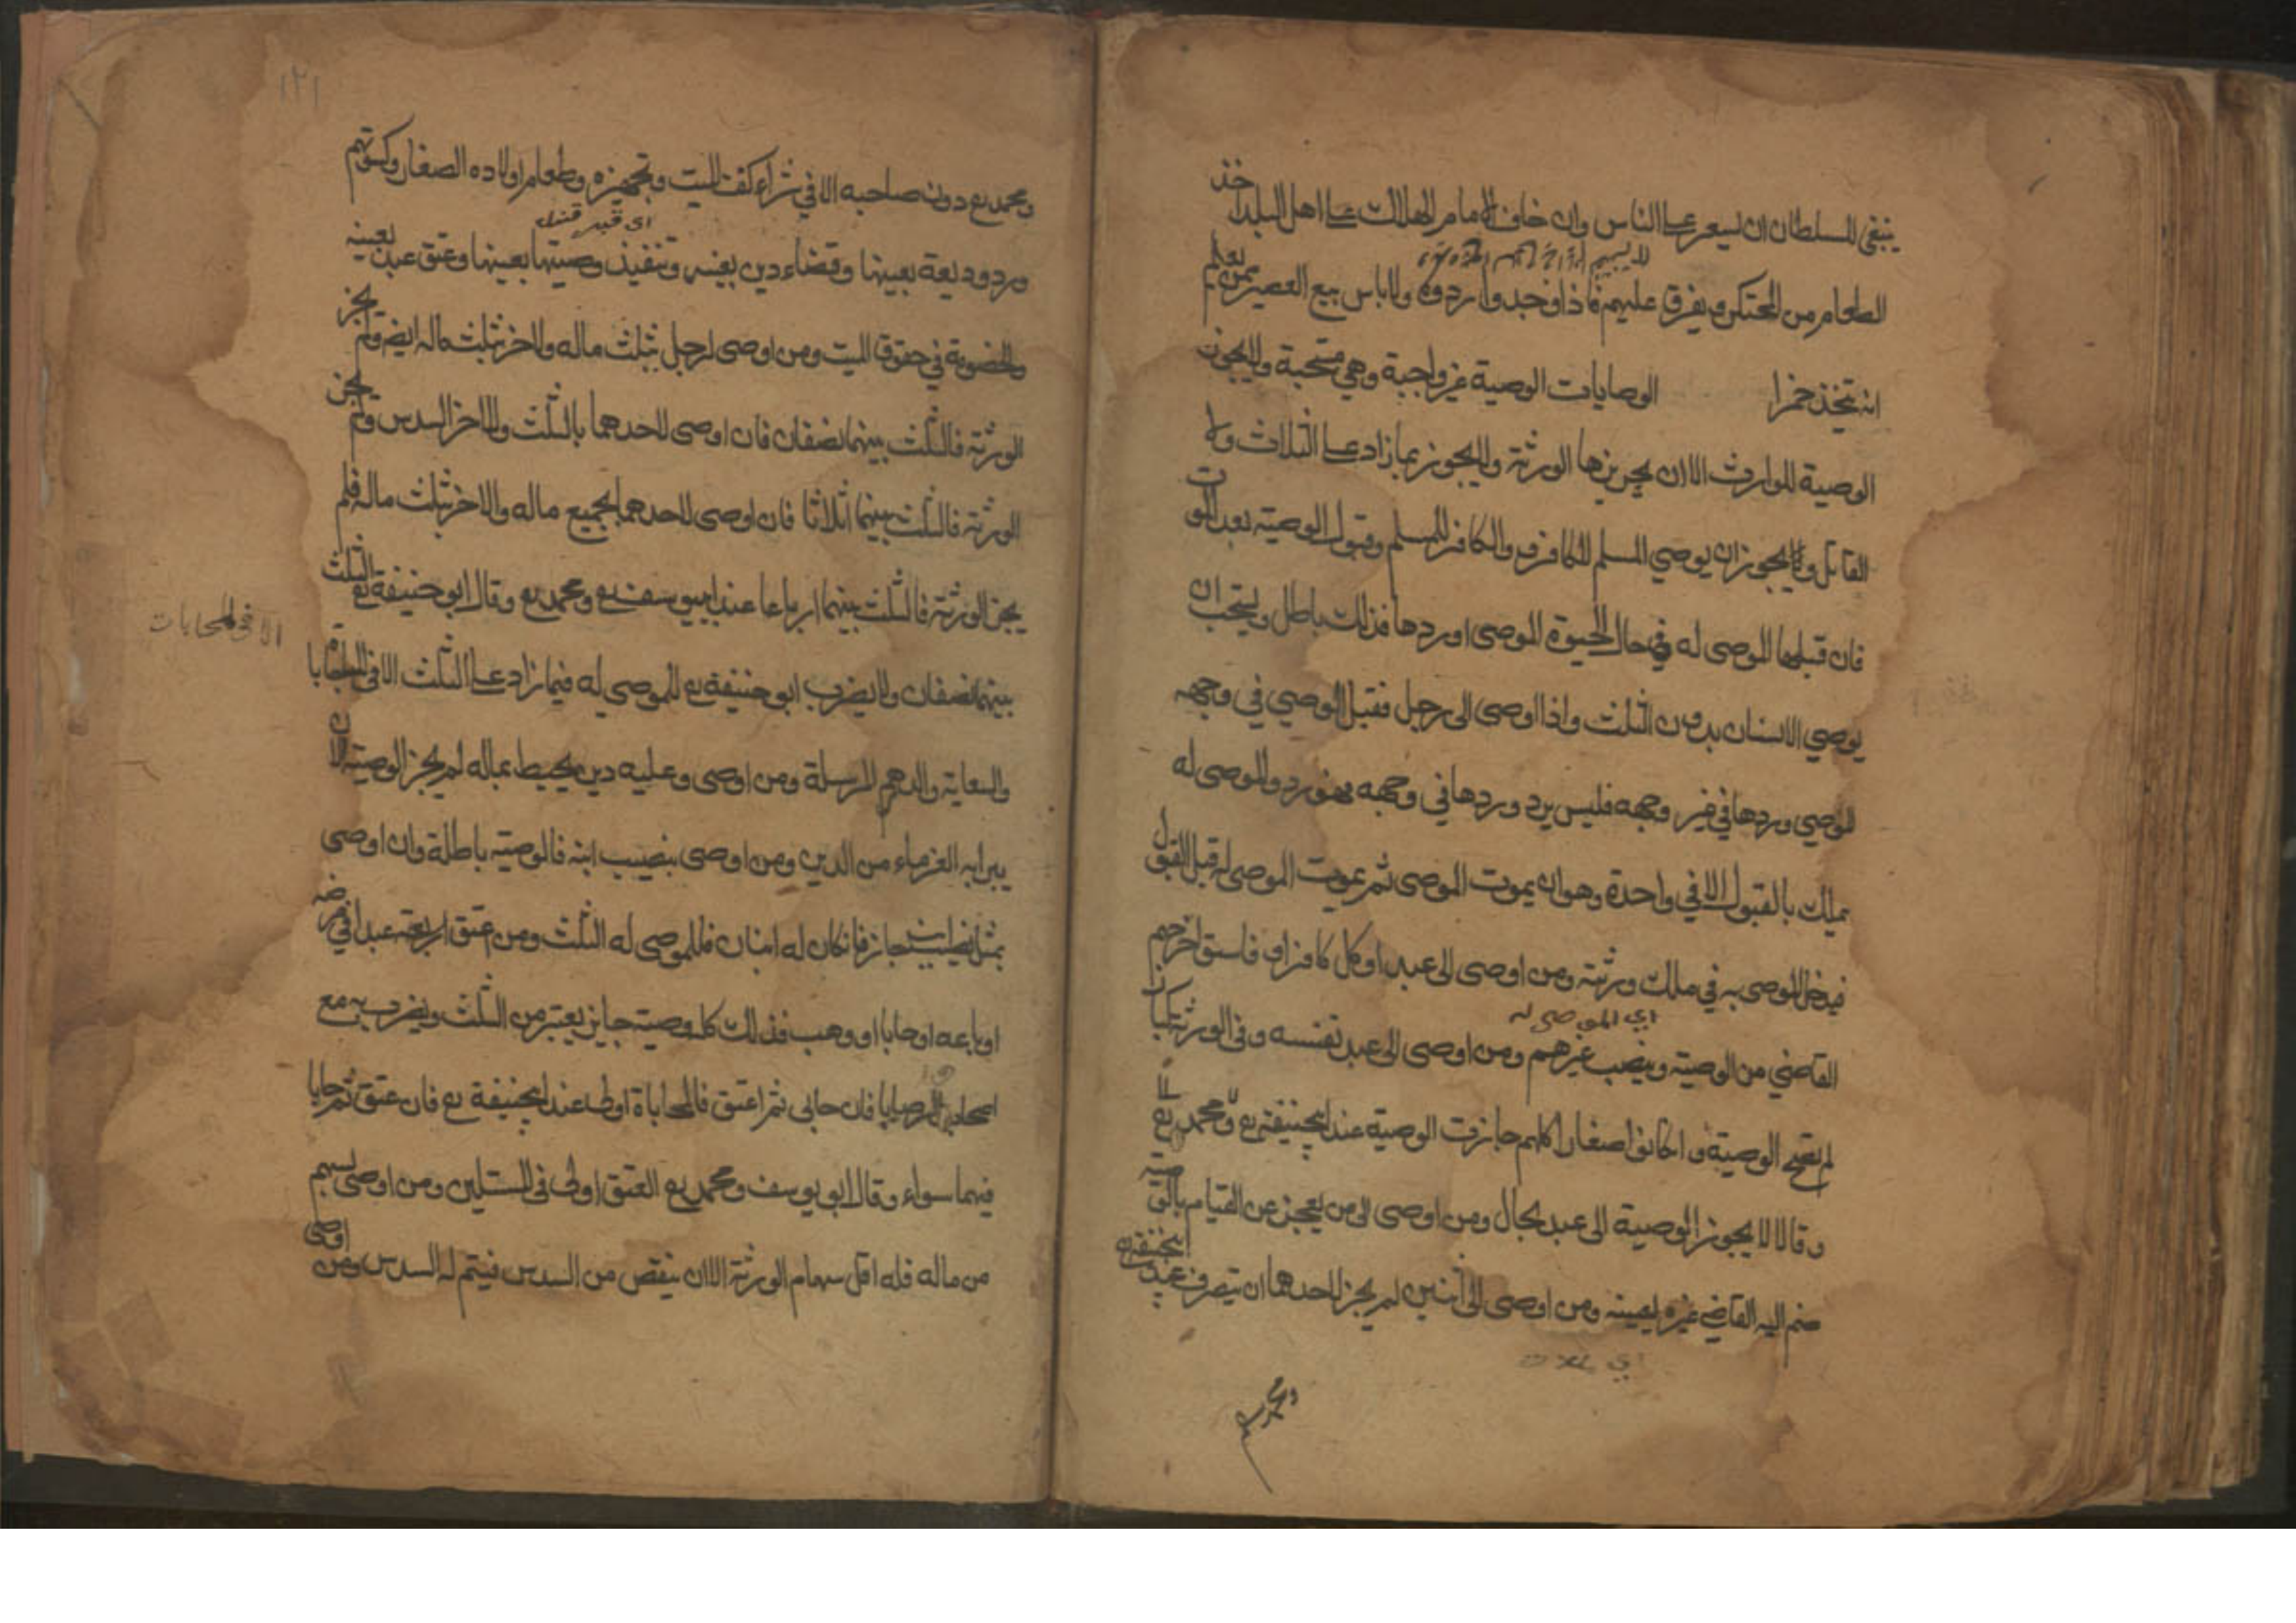 ينبغي للسلطان ان يسعر على الناس وان خاف الامام الهلاك على اهل البلد اخذ
الطعام من المحتكر ويفرق عليهم فاذا وجدوا ردوه ولا باس ببيع العصير ممن يعلم
انه يتخذ خمرا الوصايات الوصية غير واجبة وهي مستحبة ولا يجوز
الوصية للوارث الا ان يجيزها الورثة ولا يجوز بما زاد على الثلاث ولا
القاتل ولا يجوز ان يوصي المسلم للكافر والكافر للمسلم وقبول الوصية بعد الموت
فان قبلها الموصى له في حال الحيوة الموصى او ردها فذلك باطل ويستحب ان
يوصي الانسان بدون الثلث واذا اوصى الى رجل فقبل الوصي في وجهه
الموصي وردها في غير وجهه فليس برد وردها في وجهه فهو رد والموصى له
يملك بالقبول الا في واحدة وهو ان يموت الموصى ثم يموت الموصى له قبل القبول
فيدخل الموصى به في ملك ورثته ومن اوصى الى عبد او كل كافر او فاسق اخرجهم
اي الموصى له
القاضي من الوصية وينصب غيرهم ومن اوصى الى عبد نفسه وفى الورثة كبار
لم تصح الوصية وان كانوا صغار كلهم جازت الوصية عند ابيحنيفة رح ومحمد رح
وقالا لا يجوز الوصية الى عبد بحال ومن اوصى الى من يعجز عن القيام بالوصية
ضم اليه القاضي غيره بعينه ومن اوصى الى اثنين لم يجز لاحدهما ان يتصرف عند ابيحنيفة
ومحمد
١٢١
ومحمد رح دون صاحبه الا في شراء كفن الميت وتجهيزه وطعام اولاده الصغار وكسوتهم
ورد وديعة بعينها وقضاء دين بعينه وتنفيذ وصيتها بعينها وعتق عبد بعينه
والخصومة في حقوق الميت ومن اوصى لرجل بثلث ماله ولاخر بثلث ماله ايضا ولم يجز
الورثة فالثلث بينهما نصفان فان اوصى لاحدهما بالثلث وللاخر السدس ولم يجز
الورثة فالثلث بينهما اثلاثا فان اوصى لاحدهما بجميع ماله وللاخر بثلث ماله فلم
يجز الورثة فالثلث بينهما ارباعا عند ابيوسف رح ومحمد رح وقال ابو حنيفة رح الثلث
بينهما نصفان ولا يضرب ابو حنيفة رح للموصى له فيما زاد على الثلث الا في المحابا
الا في المحابات
والسعاية والدهم المرسلة ومن اوصى وعليه دين يحيط بماله لم يجز الوصية الا ان
يبرا به الغرماء من الدين ومن اوصى بنصيب ابنه فالوصية باطلة وان اوصى
بمثل نصيب ابنه جاز فانكان له ابنان فللموصى له الثلث ومن اعتق اربعة عبدا في مرضه
او باعه او حابا او وهب فذلك كله وصية جايز يعتبر من الثلث ويضرب به مع
اصحاب الوصايا فان حابى ثم اعتق فالمحاباة اولى عند ابيحنيفة رح فان عتق ثم حابا
فهما سواء وقال ابو يوسف ومحمد رح العتق اولى فى المسئلين ومن اوصى بسهم
من ماله فله اقل سهام الورثة الا ان ينقص من السدس فيتم له السدس ومن اوصى